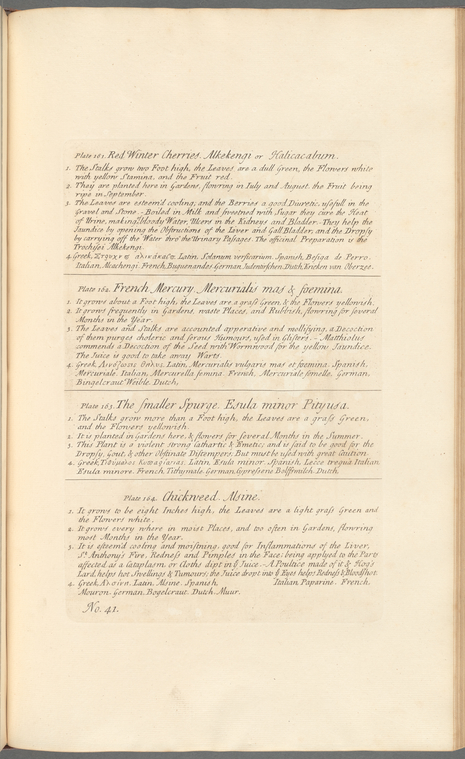 Plate 161. Red Winter Cherries. Alkekengi or Halicacabum.
1. The Stalks grow two Foot high, the Leaves are a dull Green, the Flowers white
with yellow Stamina, and the Fruit red.
2. They are planted here in Gardens, flowring in July and August the Fruit being
ripe in September.
3. The Leaves are esteem'd cooling, and the Berries a good Diuretic, usefull in the
Gravel and Stone. Boiled in Milk and sweetned with Sugar they cure the Heat
of Urine, making bloody Water, Ulcers in the Kidneys and Bladder. They help the
Jaundice by opening the Obstructions of the Liver and Gall Bladder, and the Dropsy
by carrying off the Water thro' the Urinary Passages. The officinal Preparation is the
Trochisci Alkekengi.
4. Greek, Latin, Solanum vesicarium. Spanish, Bexiga de Perro.
Italian, Alcachengi. French, German, Dutch, Kreken van Oberzee.
Plate 162. French Mercury. Mercurialis mas & fœmina.
1. It grows about a Foot high, the Leaves are a grass Green & the Flowers yellowish.
2. It grows frequently in Gardens, waste Places, and Rubbish, flowring for several
Months in the Year.
3. The Leaves and Stalks are accounted apperative and mollifying, a Decoction
of them purges choleric and serous Humours, used in Glisters. Matthiolus
commends a Decoction of the Seed with Wormwood for the yellow Jaundice.
The Juice is good to take away Warts.
4. Greek, Latin, Mercurialis vulgaris mas et fœmina. Spanish,
Mercuriale. Italian, Mercurella femina. French, Mercuriale femelle. German,
Bingelcraut Weible. Dutch.
Plate 163. The smaller Spurge. Esula minor Pityusa.
1. The Stalks grow more than a Foot high, the Leaves are a grass Green,
and the Flowers yellowish.
2. It is planted in Gardens here, & flowers for several Months in the Summer.
3. This Plant is a violent strong Cathartic & Emetic; and is said to be good for the
Dropsy, Gout, & other Obstinate Distempers. But must be used with great Caution.
4. Greek, Latin, Esula minor. Spanish, Lecce tregua. Italian,
Esula minore. French, Tithymale. German, Dutch.
Plate 164. Chickweed. Alsine.
1. It grows to be eight Inches high, the Leaves are a light grass Green and
the Flowers white.
2. It grows every where in moist Places, and too often in Gardens, flowring
most Months in the Year.
3. It is esteem'd cooling and moistning, good for Inflammations of the Liver,
St. Anthony's Fire, Redness and Pimples in the Face; being applyed to the Parts
affected as a Cataplasm or Cloths dipt in ye Juice. A Poultice made of it & Hog's
Lard, helps hot Swellings & Tumours; the Juice dropt into ye Eyes helps Redness & Bloodshot.
4. Greek, Latin, Alsine. Spanish, Italian, Paparine. French,
Mouron. German, Bogelcraut. Dutch, Muur.
No. 41.